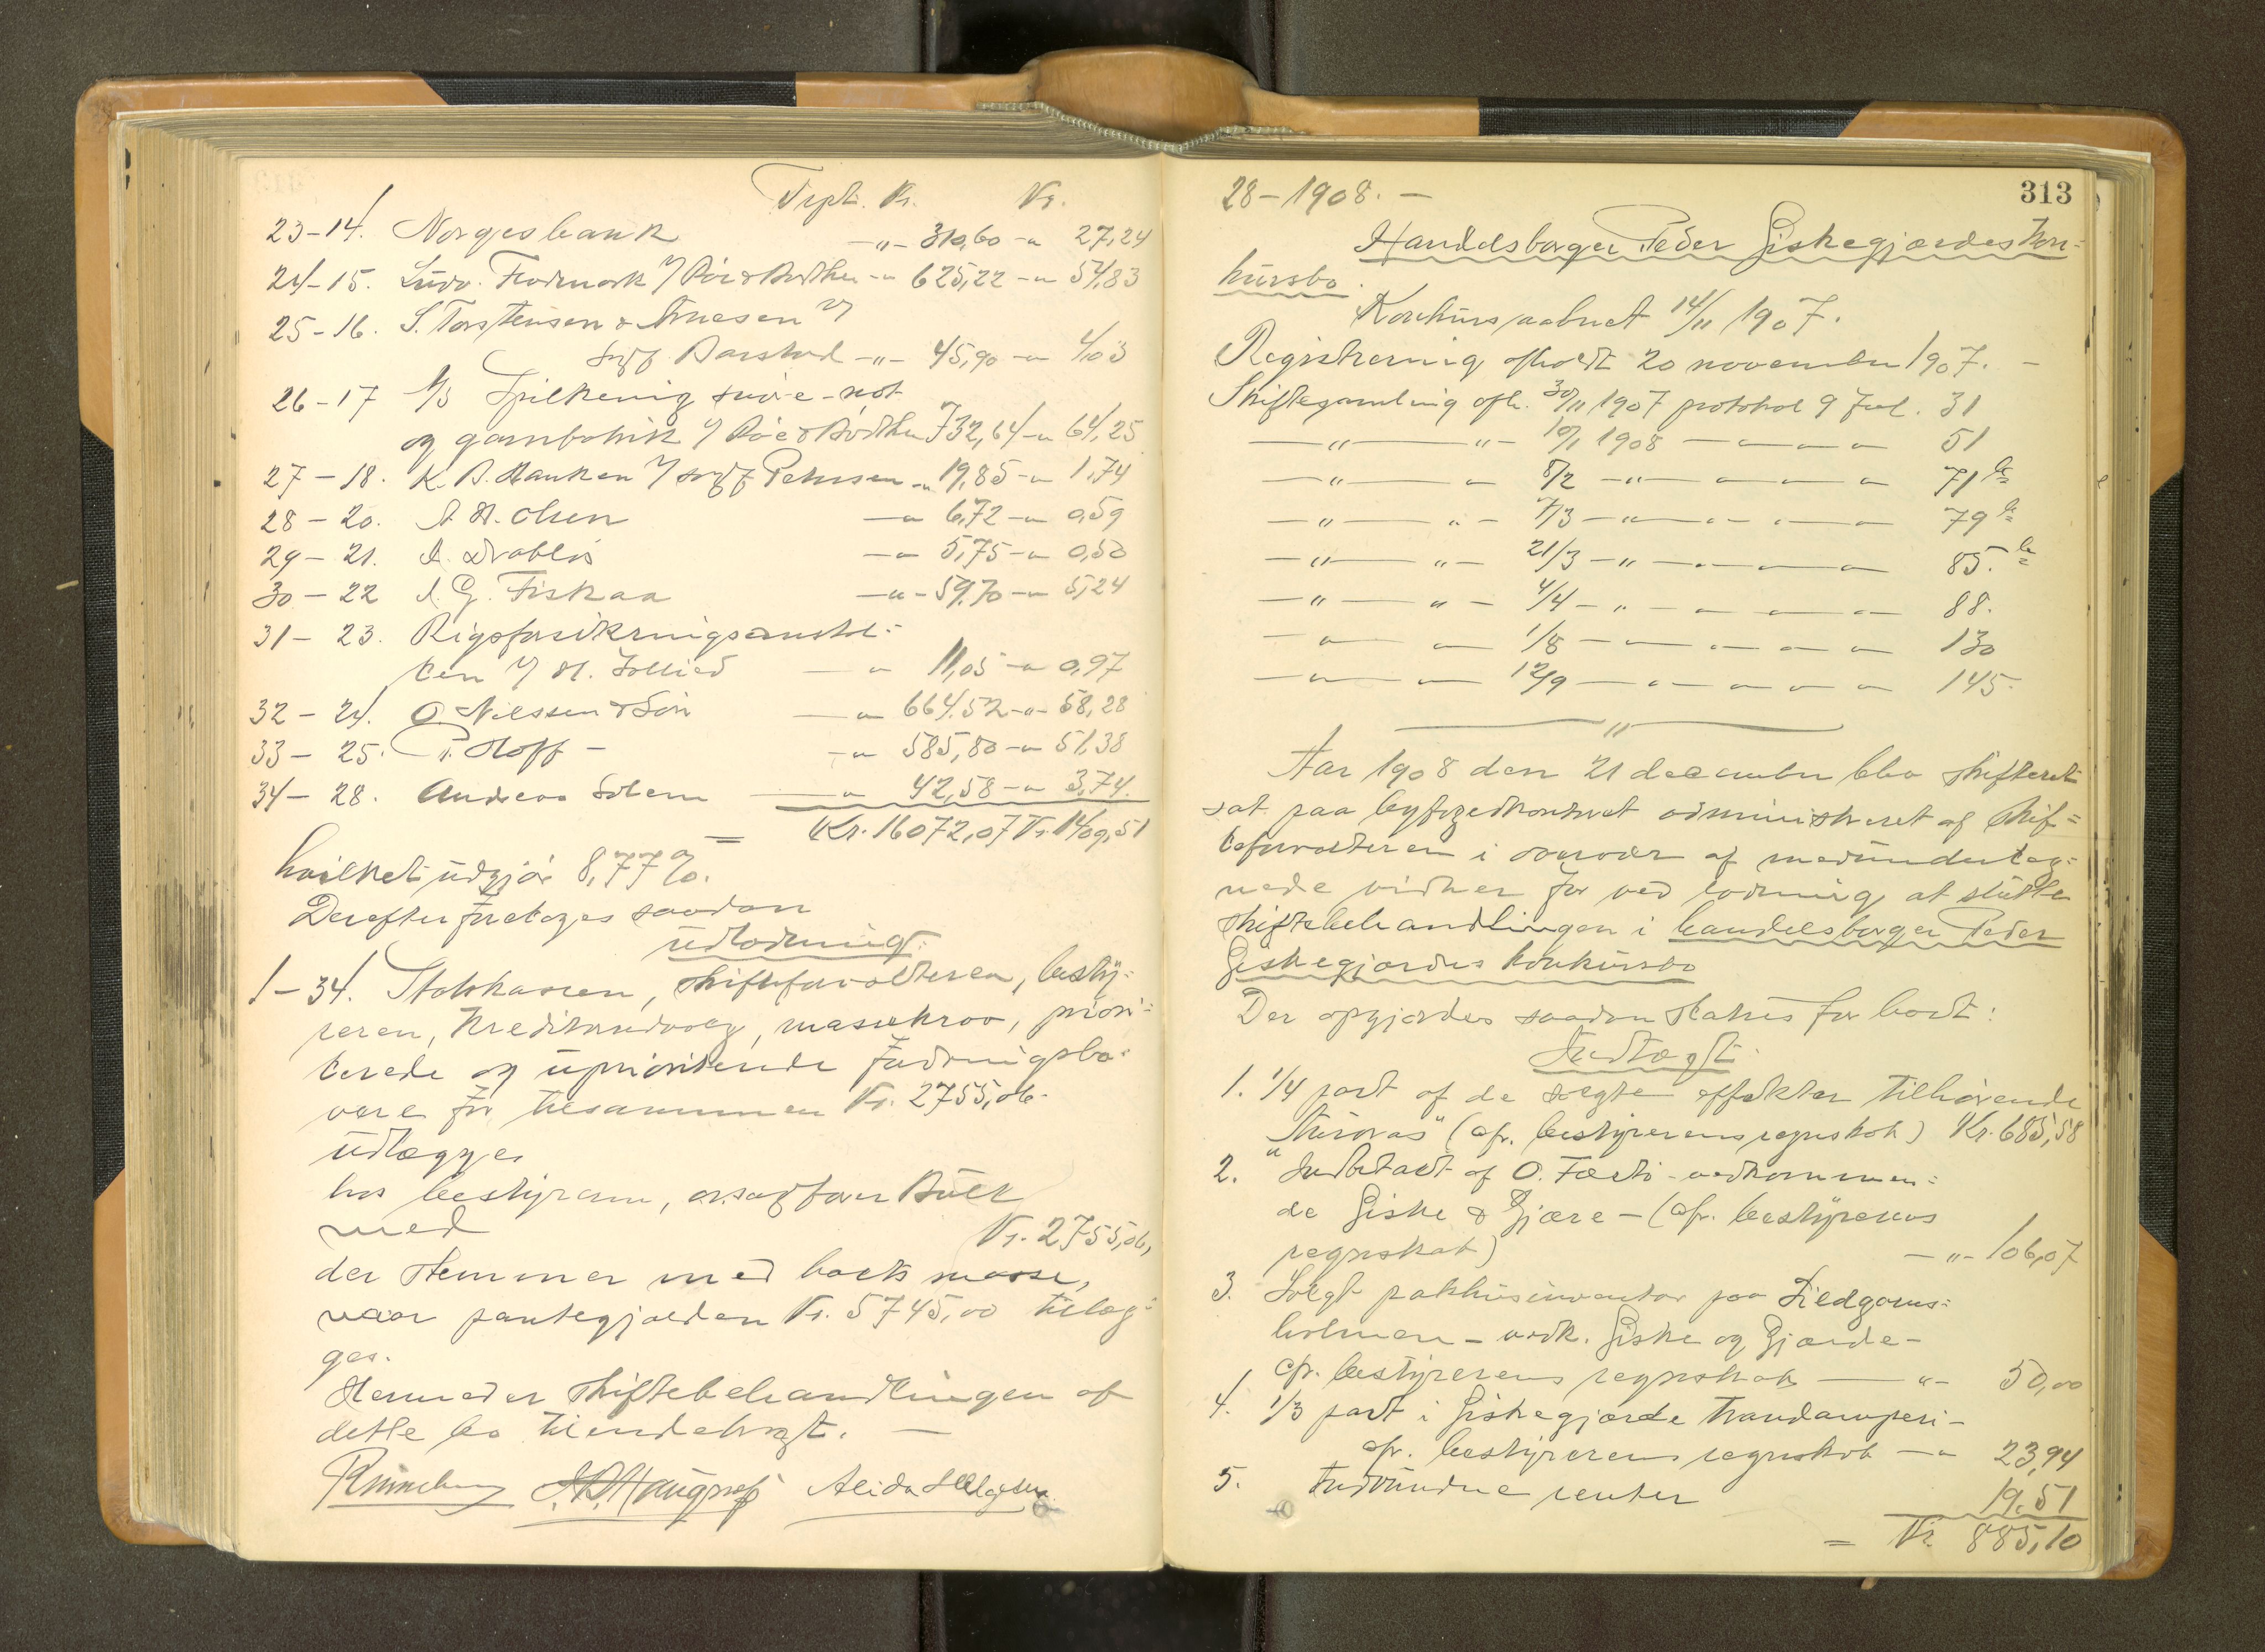 Trpt. Kr. Kr.
23-14. Norges bank -"- 310,60 -" 27,24
24-15. Ludv. Fredmark v/ Röe & Bödtker -" 625,22 -" 54,83
25-16. S. Torstensen & Arnesen v/
sagf. Barstad -"- 45,90 -" 4,03
26-17 A/S Spilkevig snöre-not
og garnfabrik v/ Röe & Bödtker 732,64 -" 64,25
27-18. K. A. Hanken v/ sagf. Petersen -" 19,85 -" 1,74
28-20. A. H. Olsen -" 6,72 -" 0,59
29-21. A. Drabløs -" 5,75 -" 0,50
30-22 A. G. Fiskaa -"- 59,70 -" 5,24
31-23. Rigsforsikringsanstal=
ten v/ H. Sollied -" 11,05 -" 0,97
32-24. O. Nilssen & Søn -" 664,52 -"- 58,28
33-25. P. Hoff - -" 585,80 -" 51,38
34-28. Andreas Solem -" 42,58 -" 3,74.
= Kr. 16072,07 Kr. 1409,51
hvilket udgjør 8,77%.
Derefter foretoges saadan
udlodning:
1-34. Statskassen, skifteforvalteren, besty=
reren, kreditorudvalg, massekrav, priori=
terede og uprioriterede fordringsha=
vere for tilsammen Kr. 2755,06.
udlægges
hos bestyreren, o.r.sagfører Bull
med Kr. 2755,06,
der stemmer med boets masse,
naar pantegjælden Kr. 5745,00 tillæg=
ges.
Hermed er skiftebehandlingen af
dette bo tilendebragt. -
Rinneberg Alida Helgesen
28-1908. -
313
Handelsborger Peder Giskegjærdes kon=
kursbo.
Konkurs aabnet 14/11 1907.
Registrering afholdt 20 november 1907. -
Skiftesamling afh. 30/11 1907 protokol 9 fol. 31
-"- "- 10/1 1908 - " " " 51
-"- " 8/2 -"- " " " 71 b
-"- "- 7/3 -"- " " " 79 b
-"- "- 21/3 -"- " " " 85. b
-"- "- 4/4 -"- " " " 88.
-"- " 1/8 -"- " " " 130
-"- " 12/9 -"- " " " 145.
"
Aar 1908 den 21 december blev skifteret
sat paa byfogedkontoret administreret af skif=
teforvalteren i overvær af medunderteg=
nede vidner for ved lodning at slutte
skiftebehandlingen i handelsborger Peder
Giskegjærdes konkursbo
Der opgjordes saadan status for boet:
Indtægt.
1. 1/4 part af de solgte effekter tilhørende
"Muroraas" (cfr. bestyrerens regnskab) Kr. 685,58
2. Indbetalt af O. Færö - vedkommen=
de Giske & Gjære - (cfr. bestyrerens
regnskab) -"- 106,07
3. Solgt pakhusinventar paa Kildgarns=
holmen - vedk. Giske og Gjærde -
cfr. bestyrerens regnskab -"- 50,00
4. 1/3 part i Giskegjærde trandamperi -
cfr. bestyrerens regnskab -" 23,94
5. Indvundne renter 19,51
= Kr. 885,10